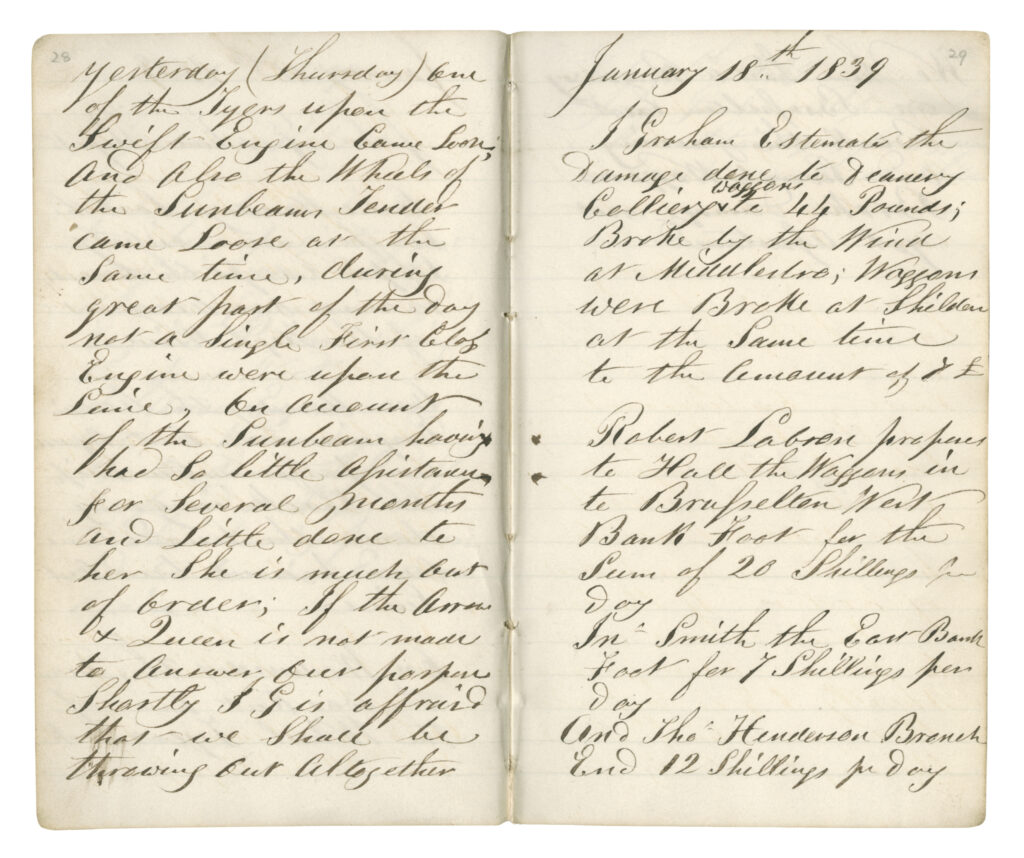 28
Yesterday (Thursday) One
of the Tyers upon the
Swift Engine Came Loose;
And Also the Wheels of
the Sunbeams Tender
came Loose at the
Same time, during
great part of the day
not a Single First Class
Engine were upon the
Laine, On Account
of the Sunbeam having
had So little Assistance
for Several Months
and Little done to
her She is much Out
of Order; If the Arrow
& Queen is not made
to Answer Our purpose
Shortly J G is affraid
that we Shall be
throwing Out Altogether
29
January 18th 1839
J Graham Estemate the
Damage done to Deanery
Colliery waggons to 44 Pounds;
Broke by the Wind
at Middlesbro; Waggons
were Broke at Shildon
at the Same time
to the Amount of 7 £
Robert Labron propose
to Hall the Waggons in
to Brusselton West
Bank Foot for the
Sum of 20 Shillings per
Day
Jnº Smith the East Bank
Foot for 7 Shillings per
Day
And Thoˢ Henderson Branch
End 12 Shillings pr Day